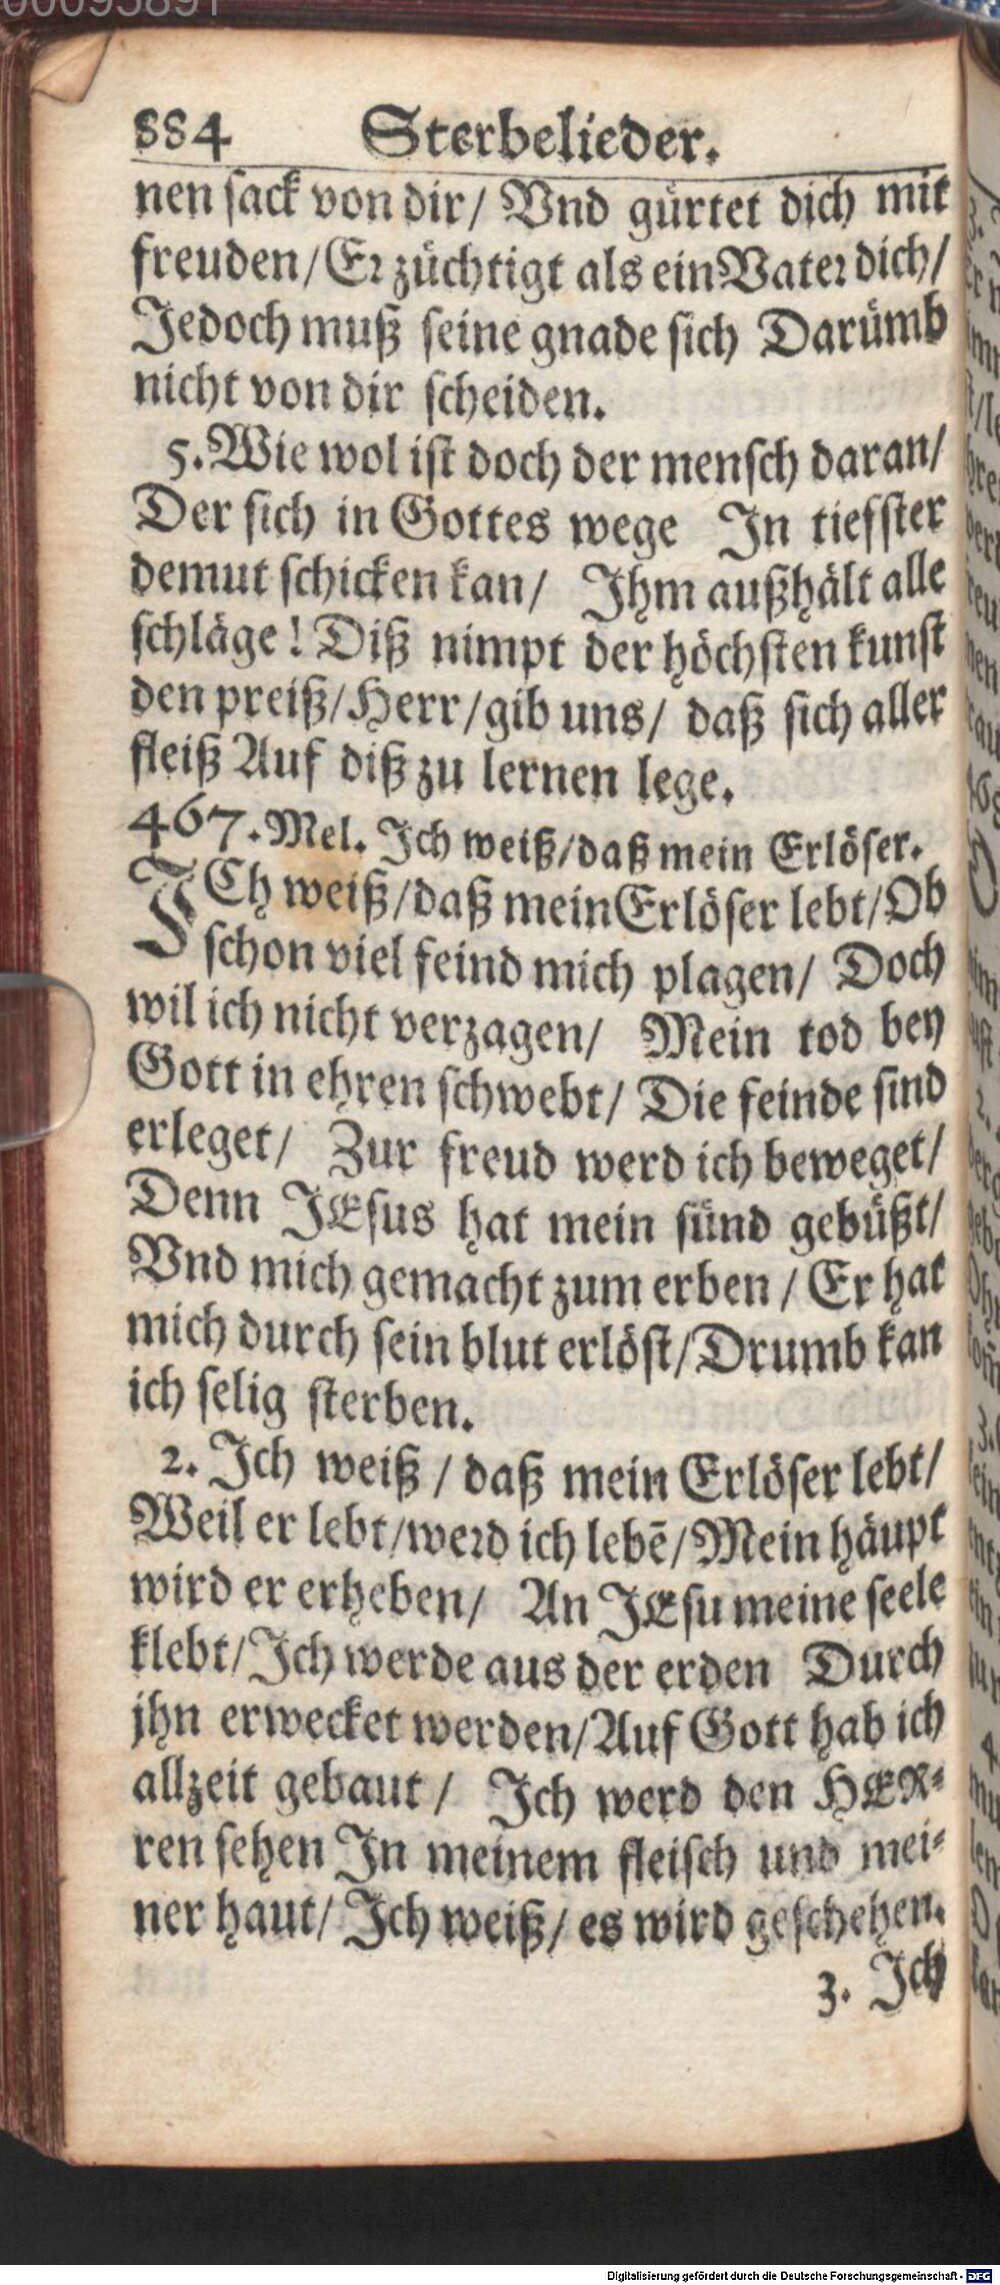 00095891
884 Sterbelieder.
nen sack von dir/ Vnd gürtet dich mit
freuden/Er züchtigt als ein Vater dich/
Jedoch muß seine gnade sich Darümb
nicht von dir scheiden.
5. Wie wol ist doch der mensch daran/
Der sich in Gottes wege In tieffster
demut schicken kan/ Ihm außhält alle
schläge! Diß nimpt der höchsten kunst
den preiß/Herr/gib uns/ daß sich aller
fleiß Auf diß zu lernen lege.
467. Mel. Ich weiß/daß mein Erlöser.
ICh weiß/daß mein Erlöser lebt/Ob
schon viel feind mich plagen/ Doch
wil ich nicht verzagen/ Mein tod bey
Gott in ehren schwebt/ Die feinde sind
erleget/ Zur freud werd ich beweget/
Denn JEsus hat mein sünd gebüßt/
Vnd mich gemacht zum erben / Er hat
mich durch sein blut erlöst/Drumb kan
ich selig sterben.
2. Ich weiß / daß mein Erlöser lebt/
Weil er lebt/werd ich lebē/Mein häupt
wird er erheben/ An JEsu meine seele
klebt/Ich werde aus der erden Durch
jhn erwecket werden/Auf Gott hab ich
allzeit gebaut / Ich werd den HER-
ren sehen In meinem fleisch und mei-
ner haut/ Ich weiß/ es wird geschehen.
3. Ich
Digitalisierung gefördert durch die Deutsche Forschungsgemeinschaft - DFG